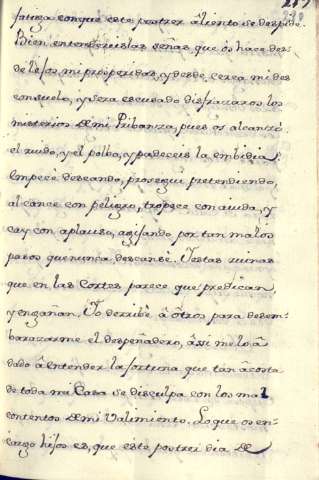 fatiga conque este postrer aliento se despide.
Bien entendereis las señas que os hace des-
de lejos mi prosperidad, y desde cerca mi des
consuelo, y sera escusado disfrazaros los
misterios de mi Pribanza, pues os alcanzó
el ruido, y el polbo, y padeceis la embidia.
Empece deseando, prosegui pretendiendo,
alcance con peligro, tropece con aiuda, y
cay con aplauso, avisando por tan malos
pasos que nunca descansè. Vestas ruinas
que en las Cortes parece que predican,
y engañan. Yo derribè à otros para desem-
barazarme el despeñadero, àssi me lo à
dado à entender la fortuna que tan à costa
de toda mi Casa se disculpa con los mal
contentos de mi Valimiento. Lo que os en-
cargo hijos es, que este postrer dia de